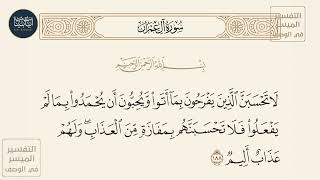 التفسير
الميسر
في الوصف
سُورَةُ آلِ عِمْرَانَ
بِسْمِ اللَّهِ الرَّحْمَنِ الرَّحِيمِ
لَا تَحْسَبَنَّ الَّذِينَ يَفْرَحُونَ بِمَا أَتَوا وَّيُحِبُّونَ أَن يُحْمَدُوا بِمَا لَمْ
يَفْعَلُوا فَلَا تَحْسَبَنَّهُم بِمَفَازَةٍ مِّنَ الْعَذَابِ ۖ وَلَهُمْ
عَذَابٌ أَلِيمٌ ١٨٨
التفسير
الميسر
في الوصف